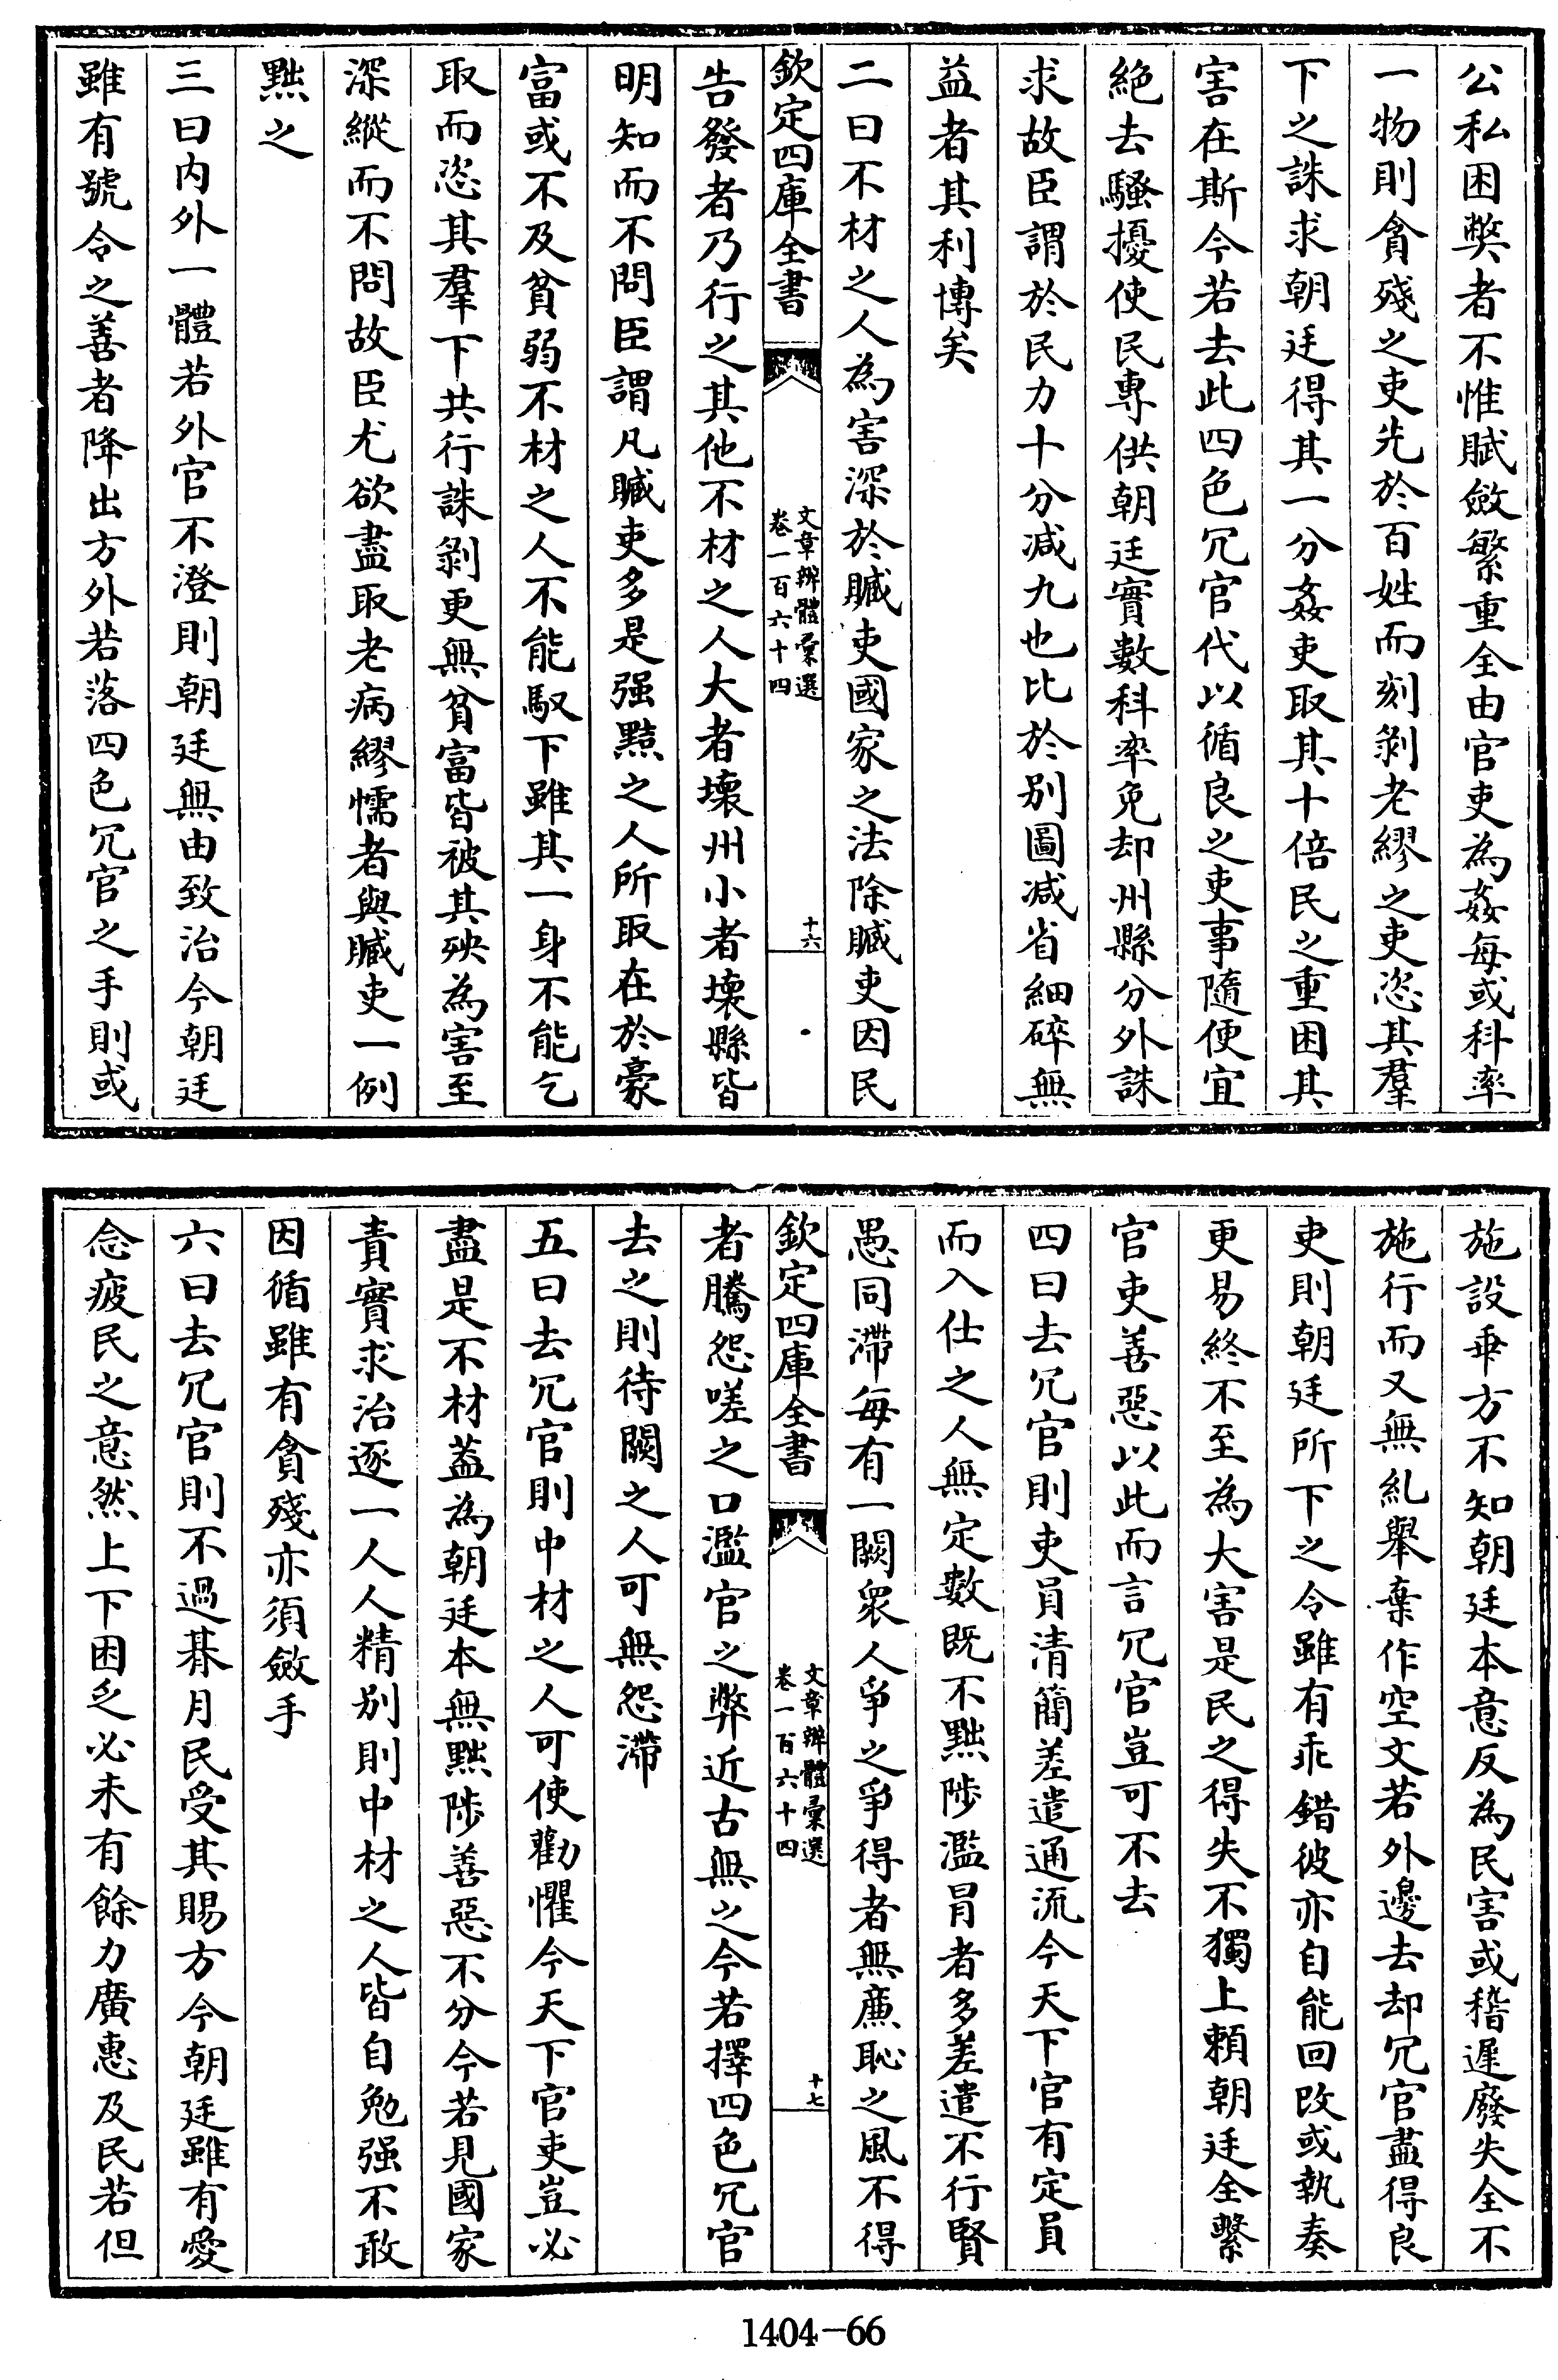 公私困獘者不惟賦斂繁重全由官吏為姦每或科率
一物則貪殘之吏先於百姓而刻剝老繆之吏恣其羣
下之誅求朝廷得其一分姦吏取其十倍民之重困其
害在斯今若去此四色冗官代以循良之吏事隨便宜
絶去騷擾使民專供朝廷實數科率免却州縣分外誅
求故臣謂於民力十分减九也比於别圖减省細碎無
益者其利博矣
二曰不材之人為害深於贓吏國家之法除贓吏因民
欽定四庫全書
文章辨體彙選
卷一百六十四
十六
告發者乃行之其他不材之人大者壞州小者壞縣皆
明知而不問臣謂凡贓吏多是强黠之人所取在於豪
富或不及貧弱不材之人不能馭下雖其一身不能乞
取而恣其羣下共行誅剝更無貧富皆被其殃為害至
深縱而不問故臣尤欲盡取老病繆懦者與贓吏一例
黜之
三曰内外一體若外官不澄則朝廷無由致治今朝廷
雖有號令之善者降出方外若落四色冗官之手則或
施設乖方不知朝廷本意反為民害或稽遲廢失全不
施行而又無糺舉棄作空文若外邊去却冗官盡得良
吏則朝廷所下之令雖有乖錯彼亦自能回改或執奏
更易終不至為大害是民之得失不獨上賴朝廷全繫
官吏善惡以此而言冗官豈可不去
四曰去冗官則吏員清簡差遣通流今天下官有定員
而入仕之人無定數既不黜陟濫冒者多差遣不行賢
愚同滯每有一闕衆人爭之爭得者無廉恥之風不得
欽定四庫全書
文章辨體彙選
卷一百六十四
十七
者騰怨嗟之口濫官之弊近古無之今若擇四色冗官
去之則待闕之人可無怨滯
五曰去冗官則中材之人可使勸懼今天下官吏豈必
盡是不材葢為朝廷本無黜陟善惡不分今若見國家
責實求治逐一人人精别則中材之人皆自勉强不敢
因循雖有貪殘亦須斂手
六曰去冗官則不過朞月民受其賜方今朝廷雖有愛
念疲民之意然上下困乏必未有餘力廣惠及民若但
1404-66